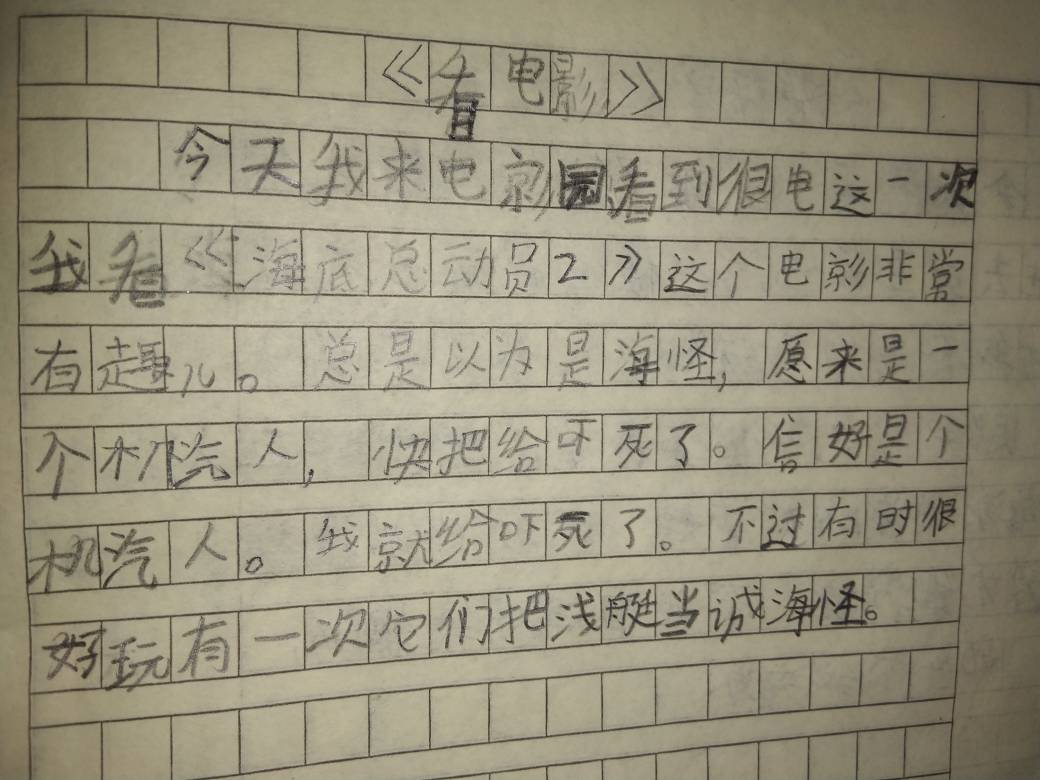 《看电影》
今天我来电影园看到很电这一次
我看《海底总动员2》这个电影非常
有趣儿。总是以为是海怪，愿来是一
个机汽人，快把给吓死了。信好是个
机汽人。我就给吓死了。不过有时很
好玩有一次它们把浅艇当诚海怪。